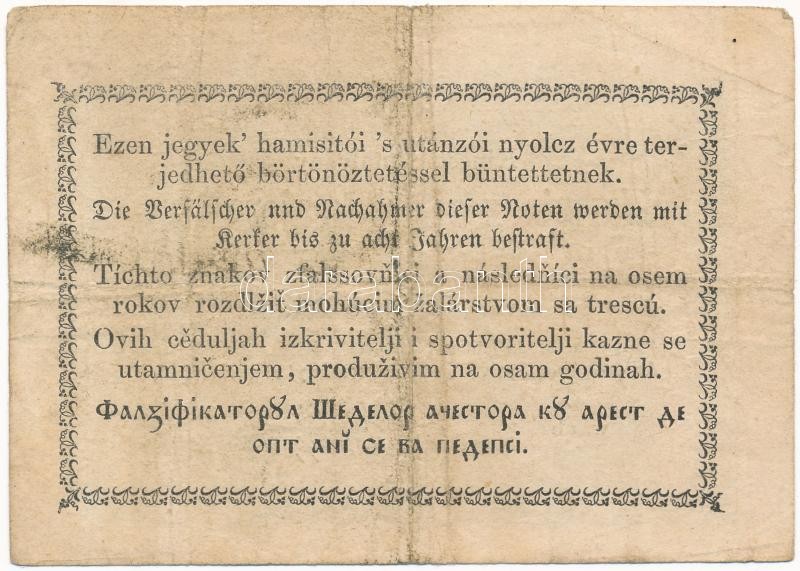 Ezen jegyek’ hamisitói ’s utánzói nyolcz évre ter-
jedhető börtönöztetéssel büntettetnek.
Die Verfälscher und Nachahmer dieser Noten werden mit
Kerker bis zu acht Jahren bestraft.
Tíchto znakov zfalssovňíci a následňíci na osem
rokov rozdlžiť mohúcim žalárstvom sa trescú.
darabanth
Ovih cěduljah izkrivitelji i spotvoritelji kazne se
utamničenjem, produživim na osam godinah.
Фалꙁіфікаторꙋл Шеделор ачестора кꙋ арест де
опт анї се ва педепсі.